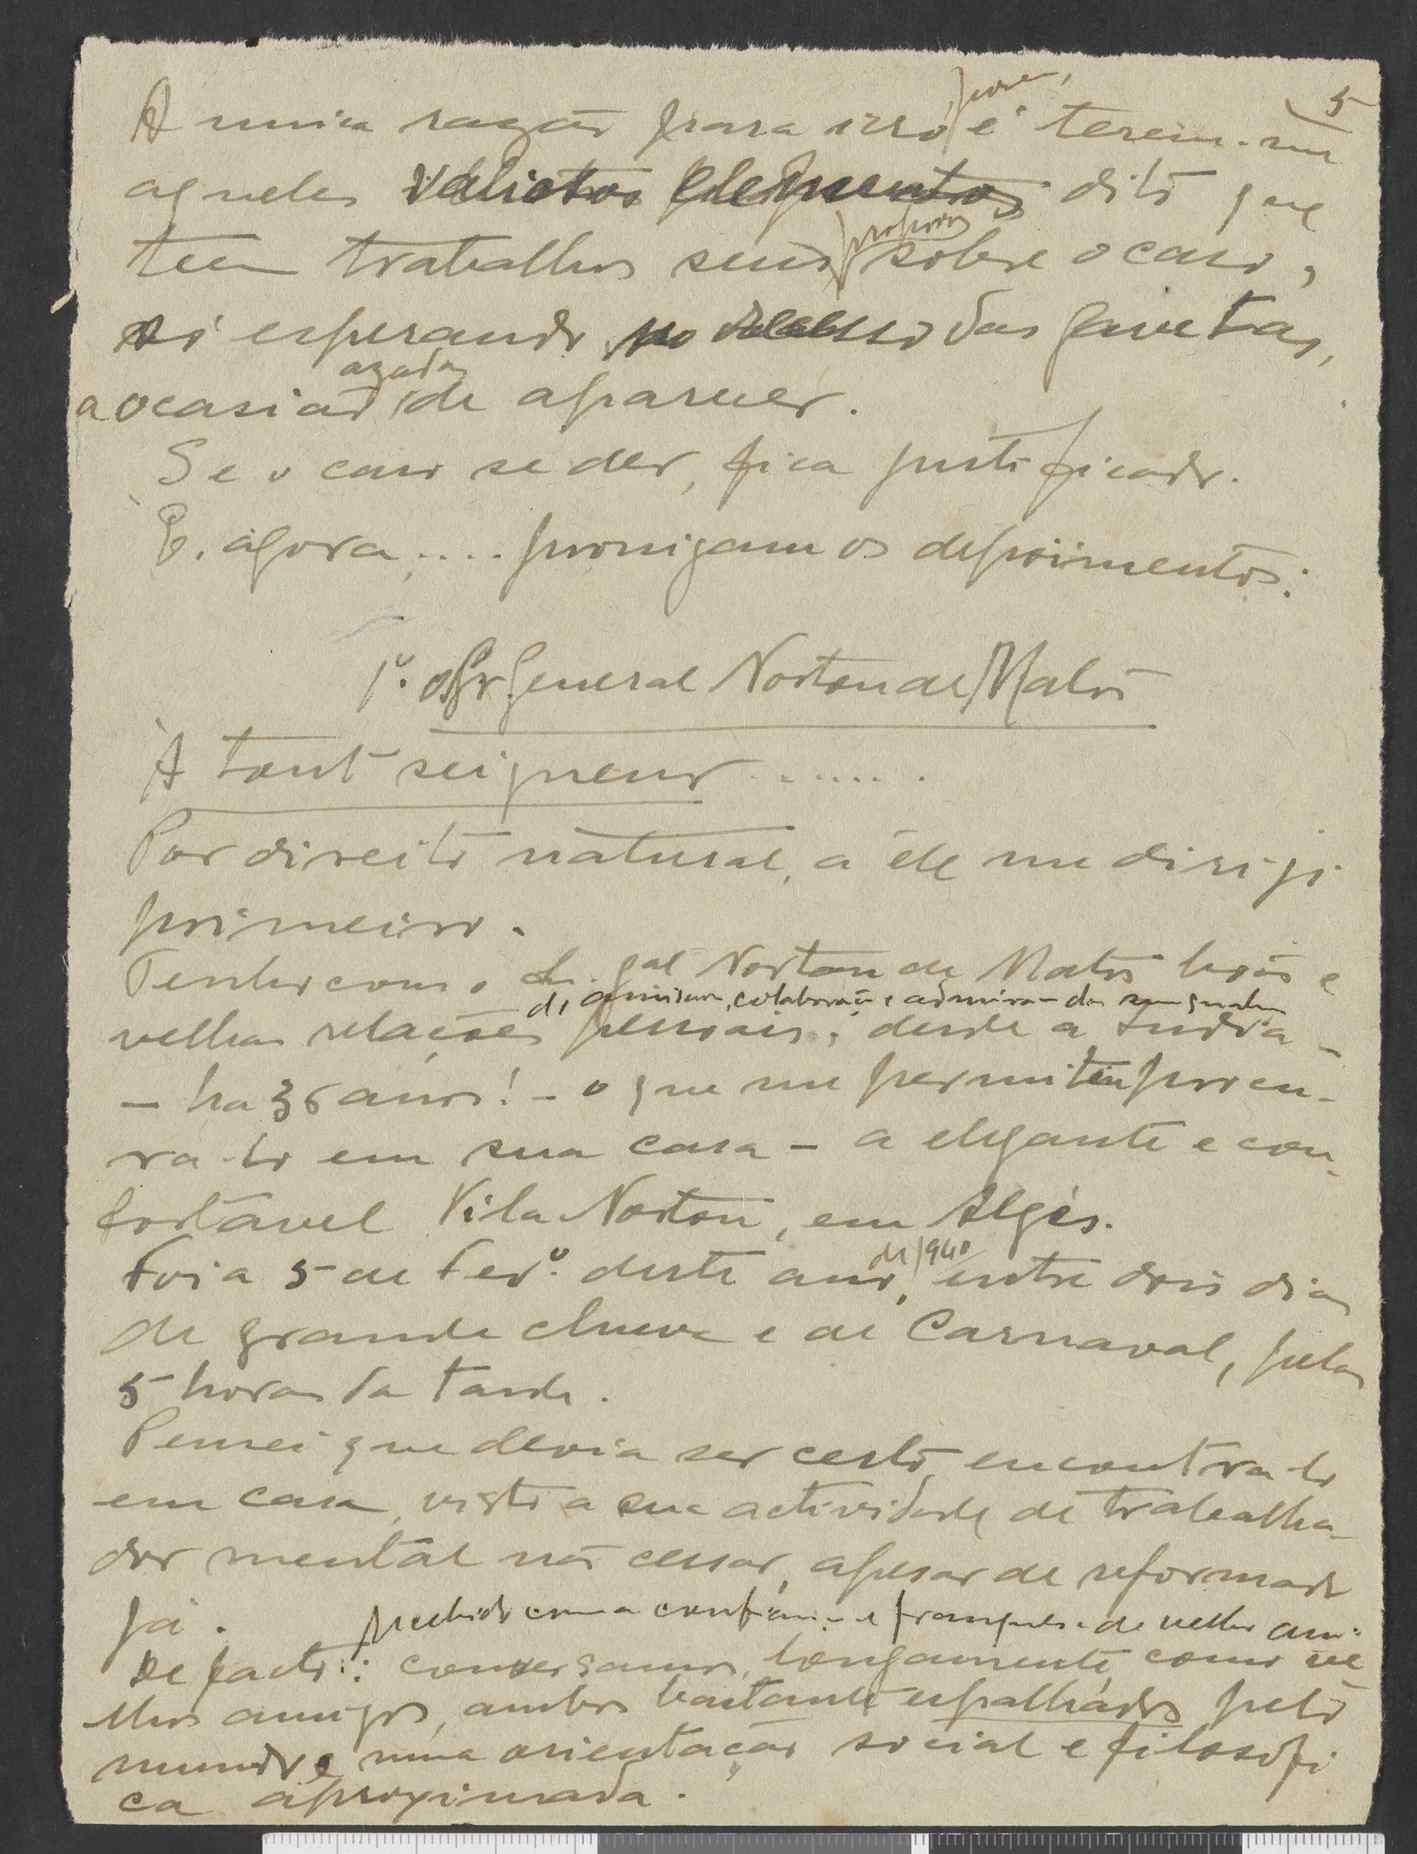 5
A unica razão para isso é terem-me
aqueles valiosos elementos dito que
teem trabalhos seus proprios sobre o caso,
só esperando, no recesso das gavetas,
a ocasião azada de aparecer.
Se o caso se der, fica justificado.
E, agora,.... prosigam os depoimentos:
1º. o Sr. General Norton de Matos
À tout seigneur.......
Por direito natural, a êle me dirigi
primeiro.
Tenho com o Sr. Gal Norton de Matos bôas e
de amisade, colaboração e admiração
velhas relações pessoais, desde a India -
- ha 36 anos! - o que me permite procu-
ra-lo em sua casa - a elegante e con-
fortável Vila Norton, em Algés.
Foi a 5 de Fevº. deste ano, de 1940 entre dois dias
de grande chuva e de Carnaval, pelas
5 horas da tarde.
Pensei que devia ser certo encontra-lo
em casa, visto a sua actividade de trabalha-
dor mental não cessar, apesar de reformado
já.
recebido com a confiança e franqueza de velho ami-
De facto: conversamos, longamente, como ve-
lhos amigos, ambos bastante espalhados pelo
mundo e numa orientação social e filosofi
ca aproximada.